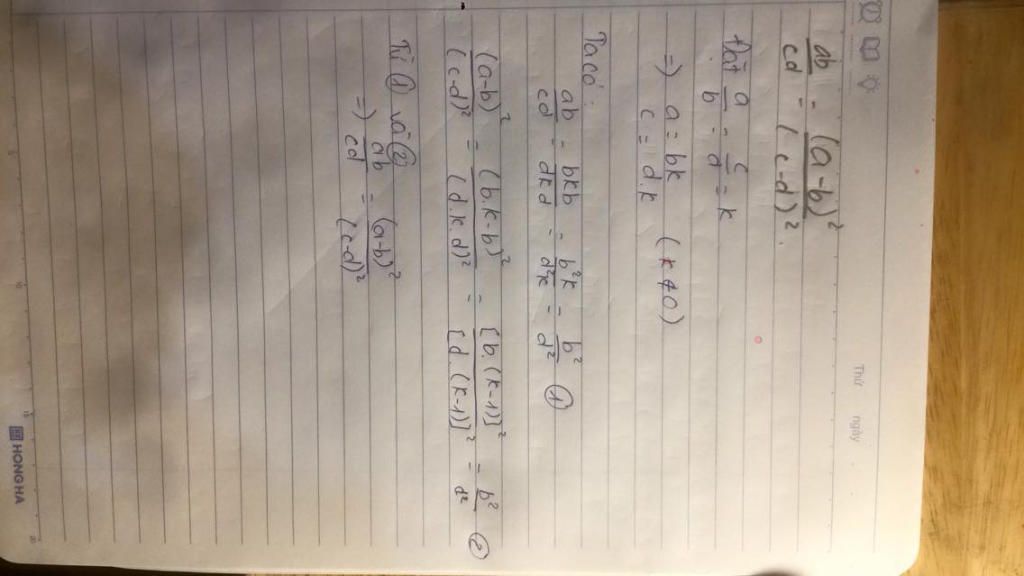 Thứ ngày
ab/cd = (a-b)²/(c-d)².
Đặt a/b = c/d = k
=) a = bk (k ≠ 0)
c = d.k
Ta có:
ab/cd = bkb/dkd = b²k/d²k = b²/d² ①
(a-b)²/(c-d)² = (b.k-b)²/(d.k.d)² = [b.(k-1)]²/[d(k-1)]² = b²/d² ②
Từ ① và ②
=) ab/cd = (a-b)²/(c-d)²
HONG HA